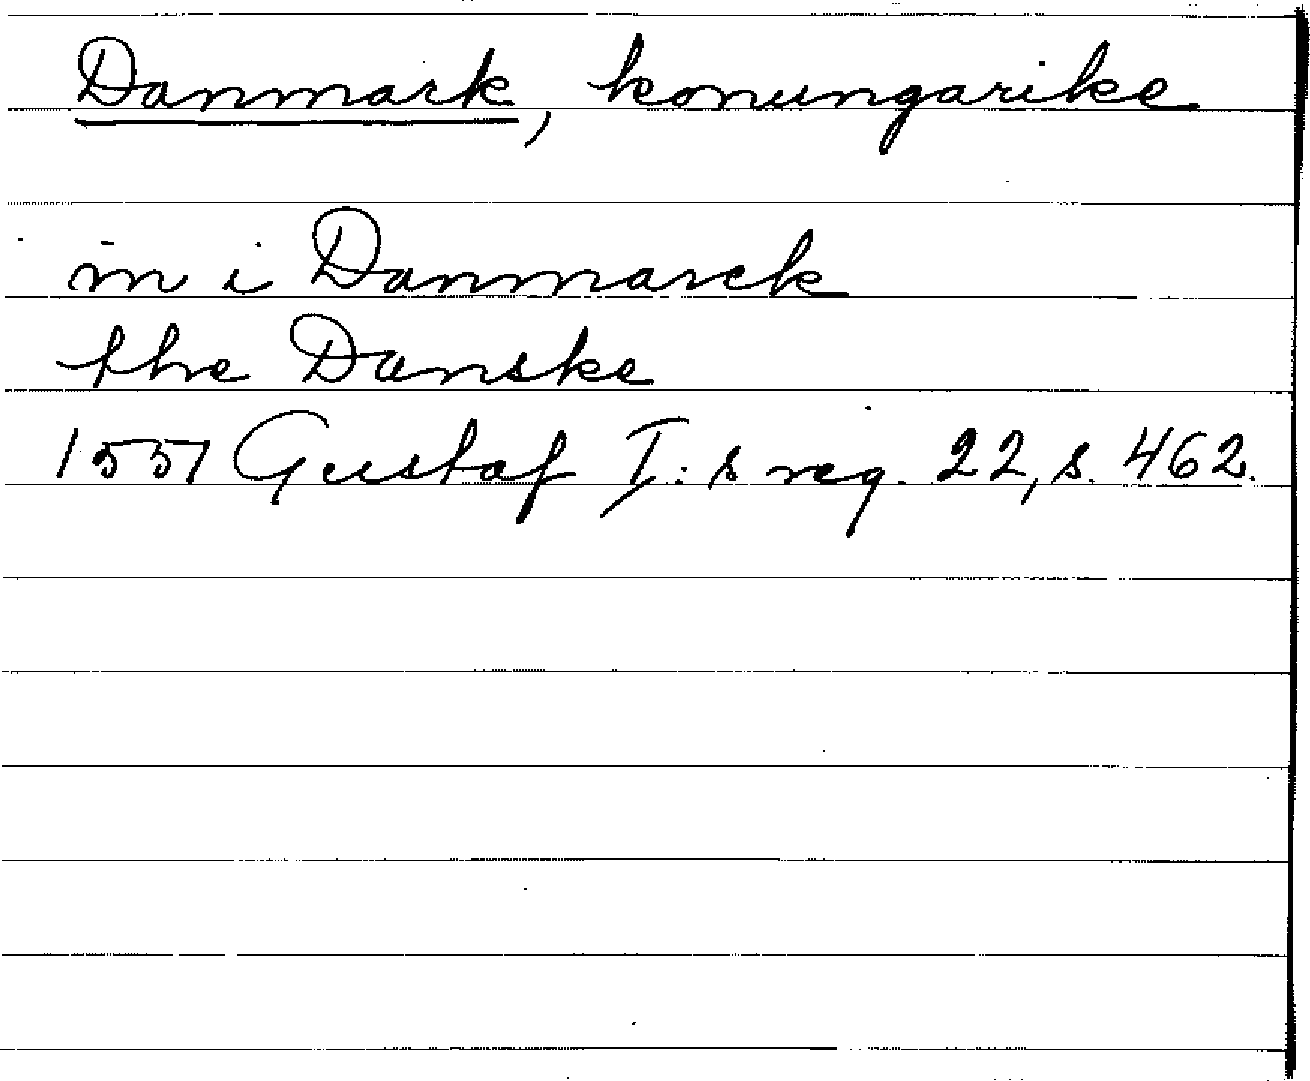 Danmark, konungarike
in i Danmarck
the Danske
1551 Gustaf I:s reg. 22, s. 462.